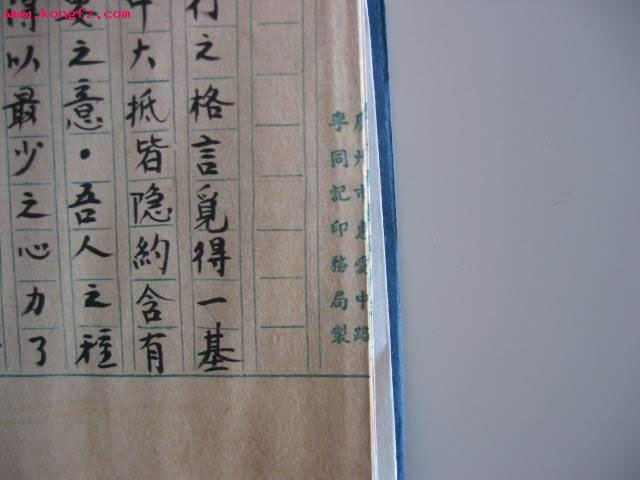 www.kongfz.com
廣州市惠愛中路
李同記印務局製
行之格言覓得一基
中大抵皆隐約含有
之意・吾人之種
得以最少之心力了